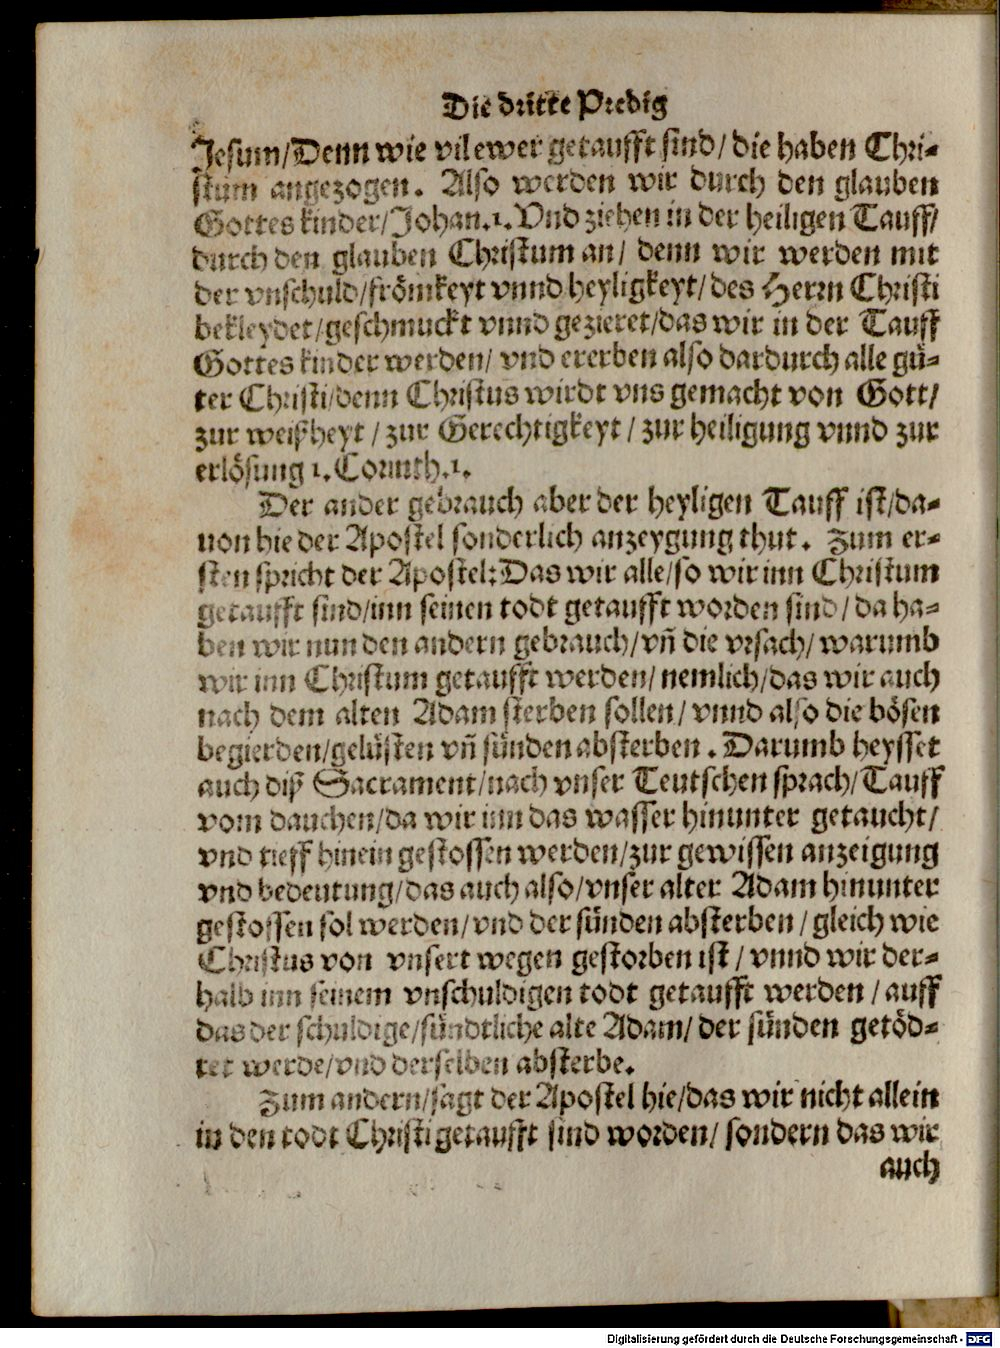 Die dritte Predig
Jesum/Denn wie vil ewer getaufft sind/ die haben Chri-
stum angezogen. Also werden wir durch den glauben
Gottes kinder/Johan.1. Vnd ziehen in der heiligen Tauff/
durch den glauben Christum an/ denn wir werden mit
der vnschuld/frömkeyt vnnd heyligkeyt/des Herrn Christi
bekleydet/geschmuckt vnnd gezieret/das wir in der Tauff
Gottes kinder werden/ vnd ererben also dardurch alle gü-
ter Christi/denn Christus wirdt vns gemacht von Gott/
zur weißheyt / zur Gerechtigkeyt / zur heiligung vnnd zur
erlösung 1. Corinth.1.
Der ander gebrauch aber der heyligen Tauff ist/da-
uon hie der Apostel sonderlich anzeygung thut. Zum er-
sten spricht der Apostel: Das wir alle/so wir inn Christum
getaufft sind/inn seinen todt getaufft worden sind/ da ha-
ben wir nun den andern gebrauch/vñ die vrsach/ warumb
wir inn Christum getaufft werden/ nemlich/das wir auch
nach dem alten Adam sterben sollen/ vnnd also die bösen
begierden/gelüsten vñ sünden absterben. Darumb heysset
auch diß Sacrament/nach vnser Teutschen sprach/ Tauff
vom dauchen/da wir inn das wasser hinunter getaucht/
vnd tieff hinein gestossen werden/zur gewissen anzeigung
vnd bedeutung/das auch also/vnser alter Adam hinunter
gestossen sol werden/vnd der sünden absterben / gleich wie
Christus von vnsert wegen gestorben ist / vnnd wir der-
halb inn seinem vnschuldigen todt getaufft werden / auff
das der schuldige/sündtliche alte Adam/ der sünden getöd-
tet werde/vnd derselben absterbe.
Zum andern/sagt der Apostel hie/das wir nicht allein
in den todt Christi getaufft sind worden/ sondern das wir
auch
Digitalisierung gefördert durch die Deutsche Forschungsgemeinschaft - DFG